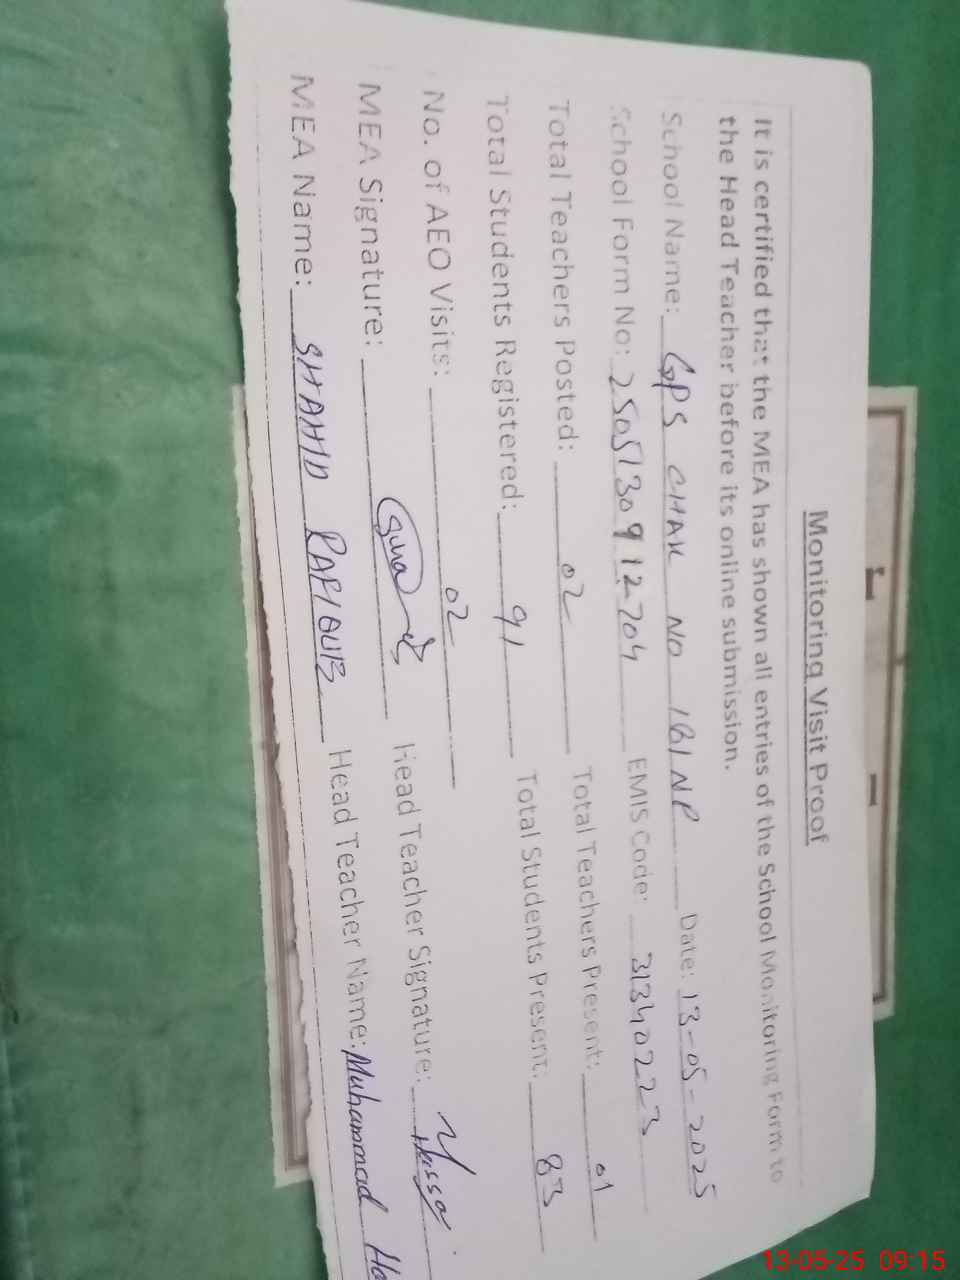 Monitoring Visit Proof
It is certified that the MEA has shown all entries of the School Monitoring Form to
the Head Teacher before its online submission.
School Name: GPS CHAK NO 161 NP Date: 13-05-2025
School Form No: 2505130912704 EMIS Code: 31340223
Total Teachers Posted: 02 Total Teachers Present: 01
Total Students Registered: 91 Total Students Present: 83
No. of AEO Visits: 02
MEA Signature: Head Teacher Signature:
MEA Name: SHAHID RAFIQUE Head Teacher Name: Muhammad Ha
13-05-25 09:15